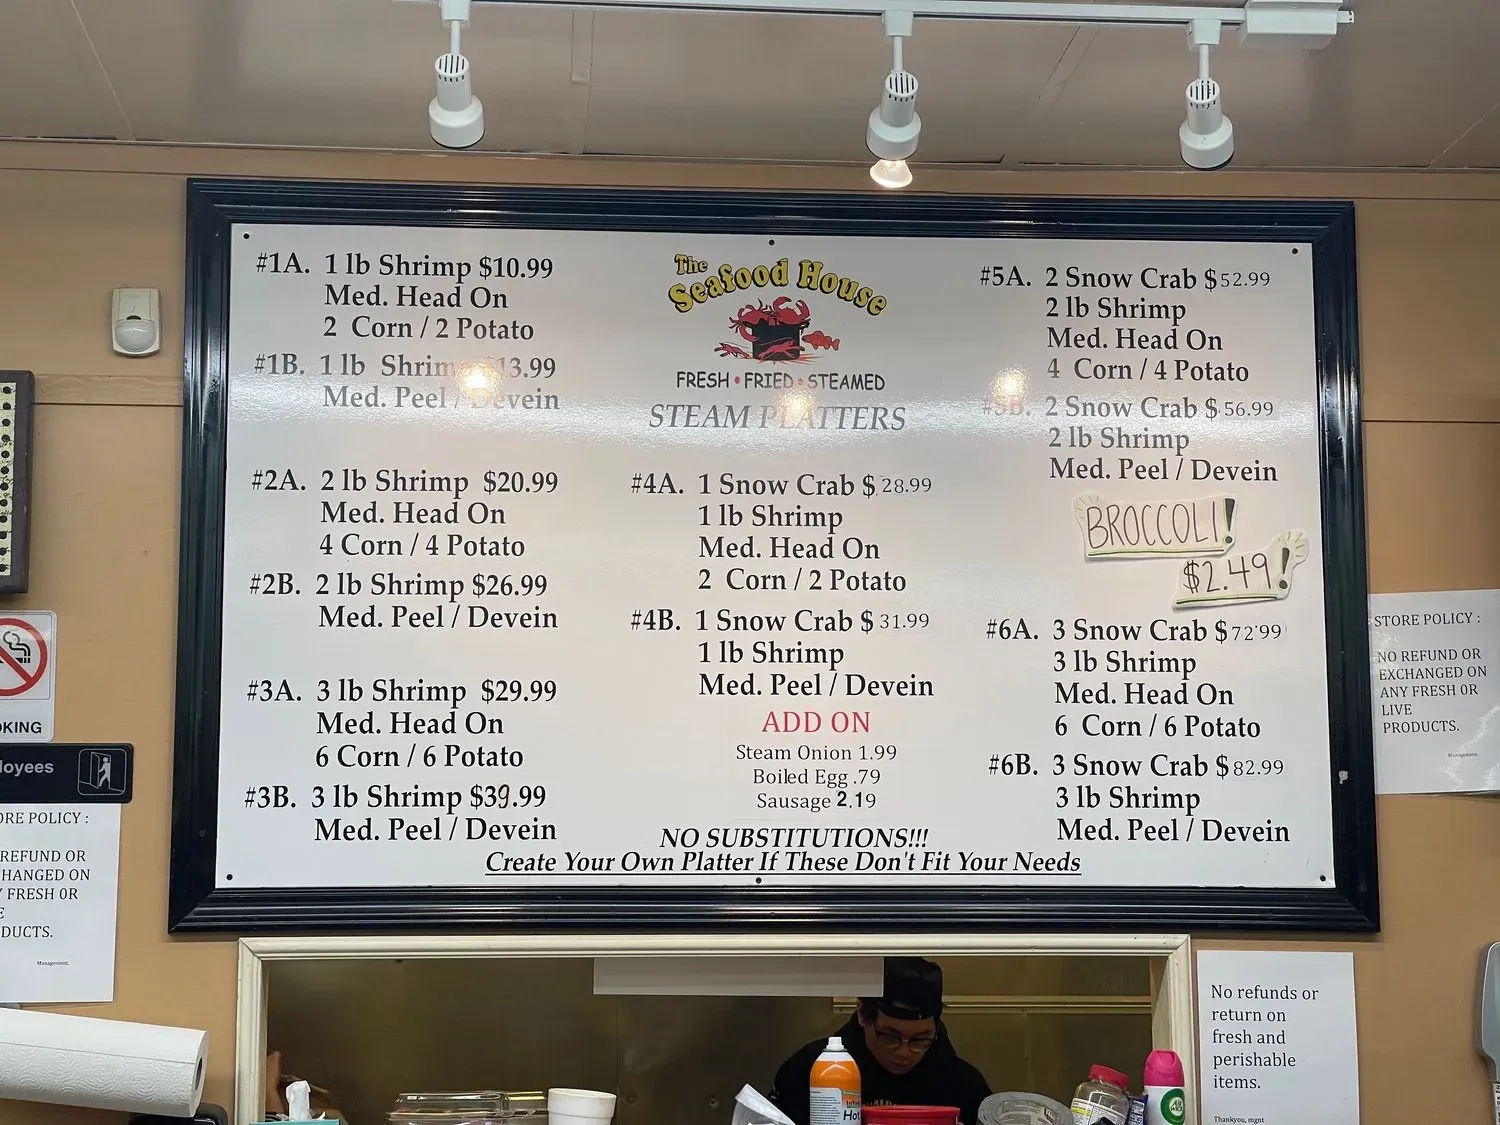 #1A. 1 lb Shrimp $10.99
Med. Head On
2 Corn / 2 Potato
#1B. 1 lb Shrimp $13.99
Med. Peel / Devein
#2A. 2 lb Shrimp $20.99
Med. Head On
4 Corn / 4 Potato
#2B. 2 lb Shrimp $26.99
Med. Peel / Devein
#3A. 3 lb Shrimp $29.99
Med. Head On
6 Corn / 6 Potato
#3B. 3 lb Shrimp $39.99
Med. Peel / Devein
The
Seafood House
FRESH • FRIED • STEAMED
STEAM PLATTERS
#4A. 1 Snow Crab $ 28.99
1 lb Shrimp
Med. Head On
2 Corn / 2 Potato
#4B. 1 Snow Crab $ 31.99
1 lb Shrimp
Med. Peel / Devein
ADD ON
Steam Onion 1.99
Boiled Egg .79
Sausage 2.19
NO SUBSTITUTIONS!!!
Create Your Own Platter If These Don't Fit Your Needs
#5A. 2 Snow Crab $ 52.99
2 lb Shrimp
Med. Head On
4 Corn / 4 Potato
#5B. 2 Snow Crab $ 56.99
2 lb Shrimp
Med. Peel / Devein
BROCCOLI!
$2.49!
#6A. 3 Snow Crab $ 72.99
3 lb Shrimp
Med. Head On
6 Corn / 6 Potato
#6B. 3 Snow Crab $ 82.99
3 lb Shrimp
Med. Peel / Devein
OKING
loyees
ORE POLICY :
REFUND OR
HANGED ON
Y FRESH 0R
E
DUCTS.
Management.
STORE POLICY :
NO REFUND OR
EXCHANGED ON
ANY FRESH 0R
LIVE
PRODUCTS.
Management.
No refunds or
return on
fresh and
perishable
items.
Thankyou, mgnt
Hot
AIR
WICK